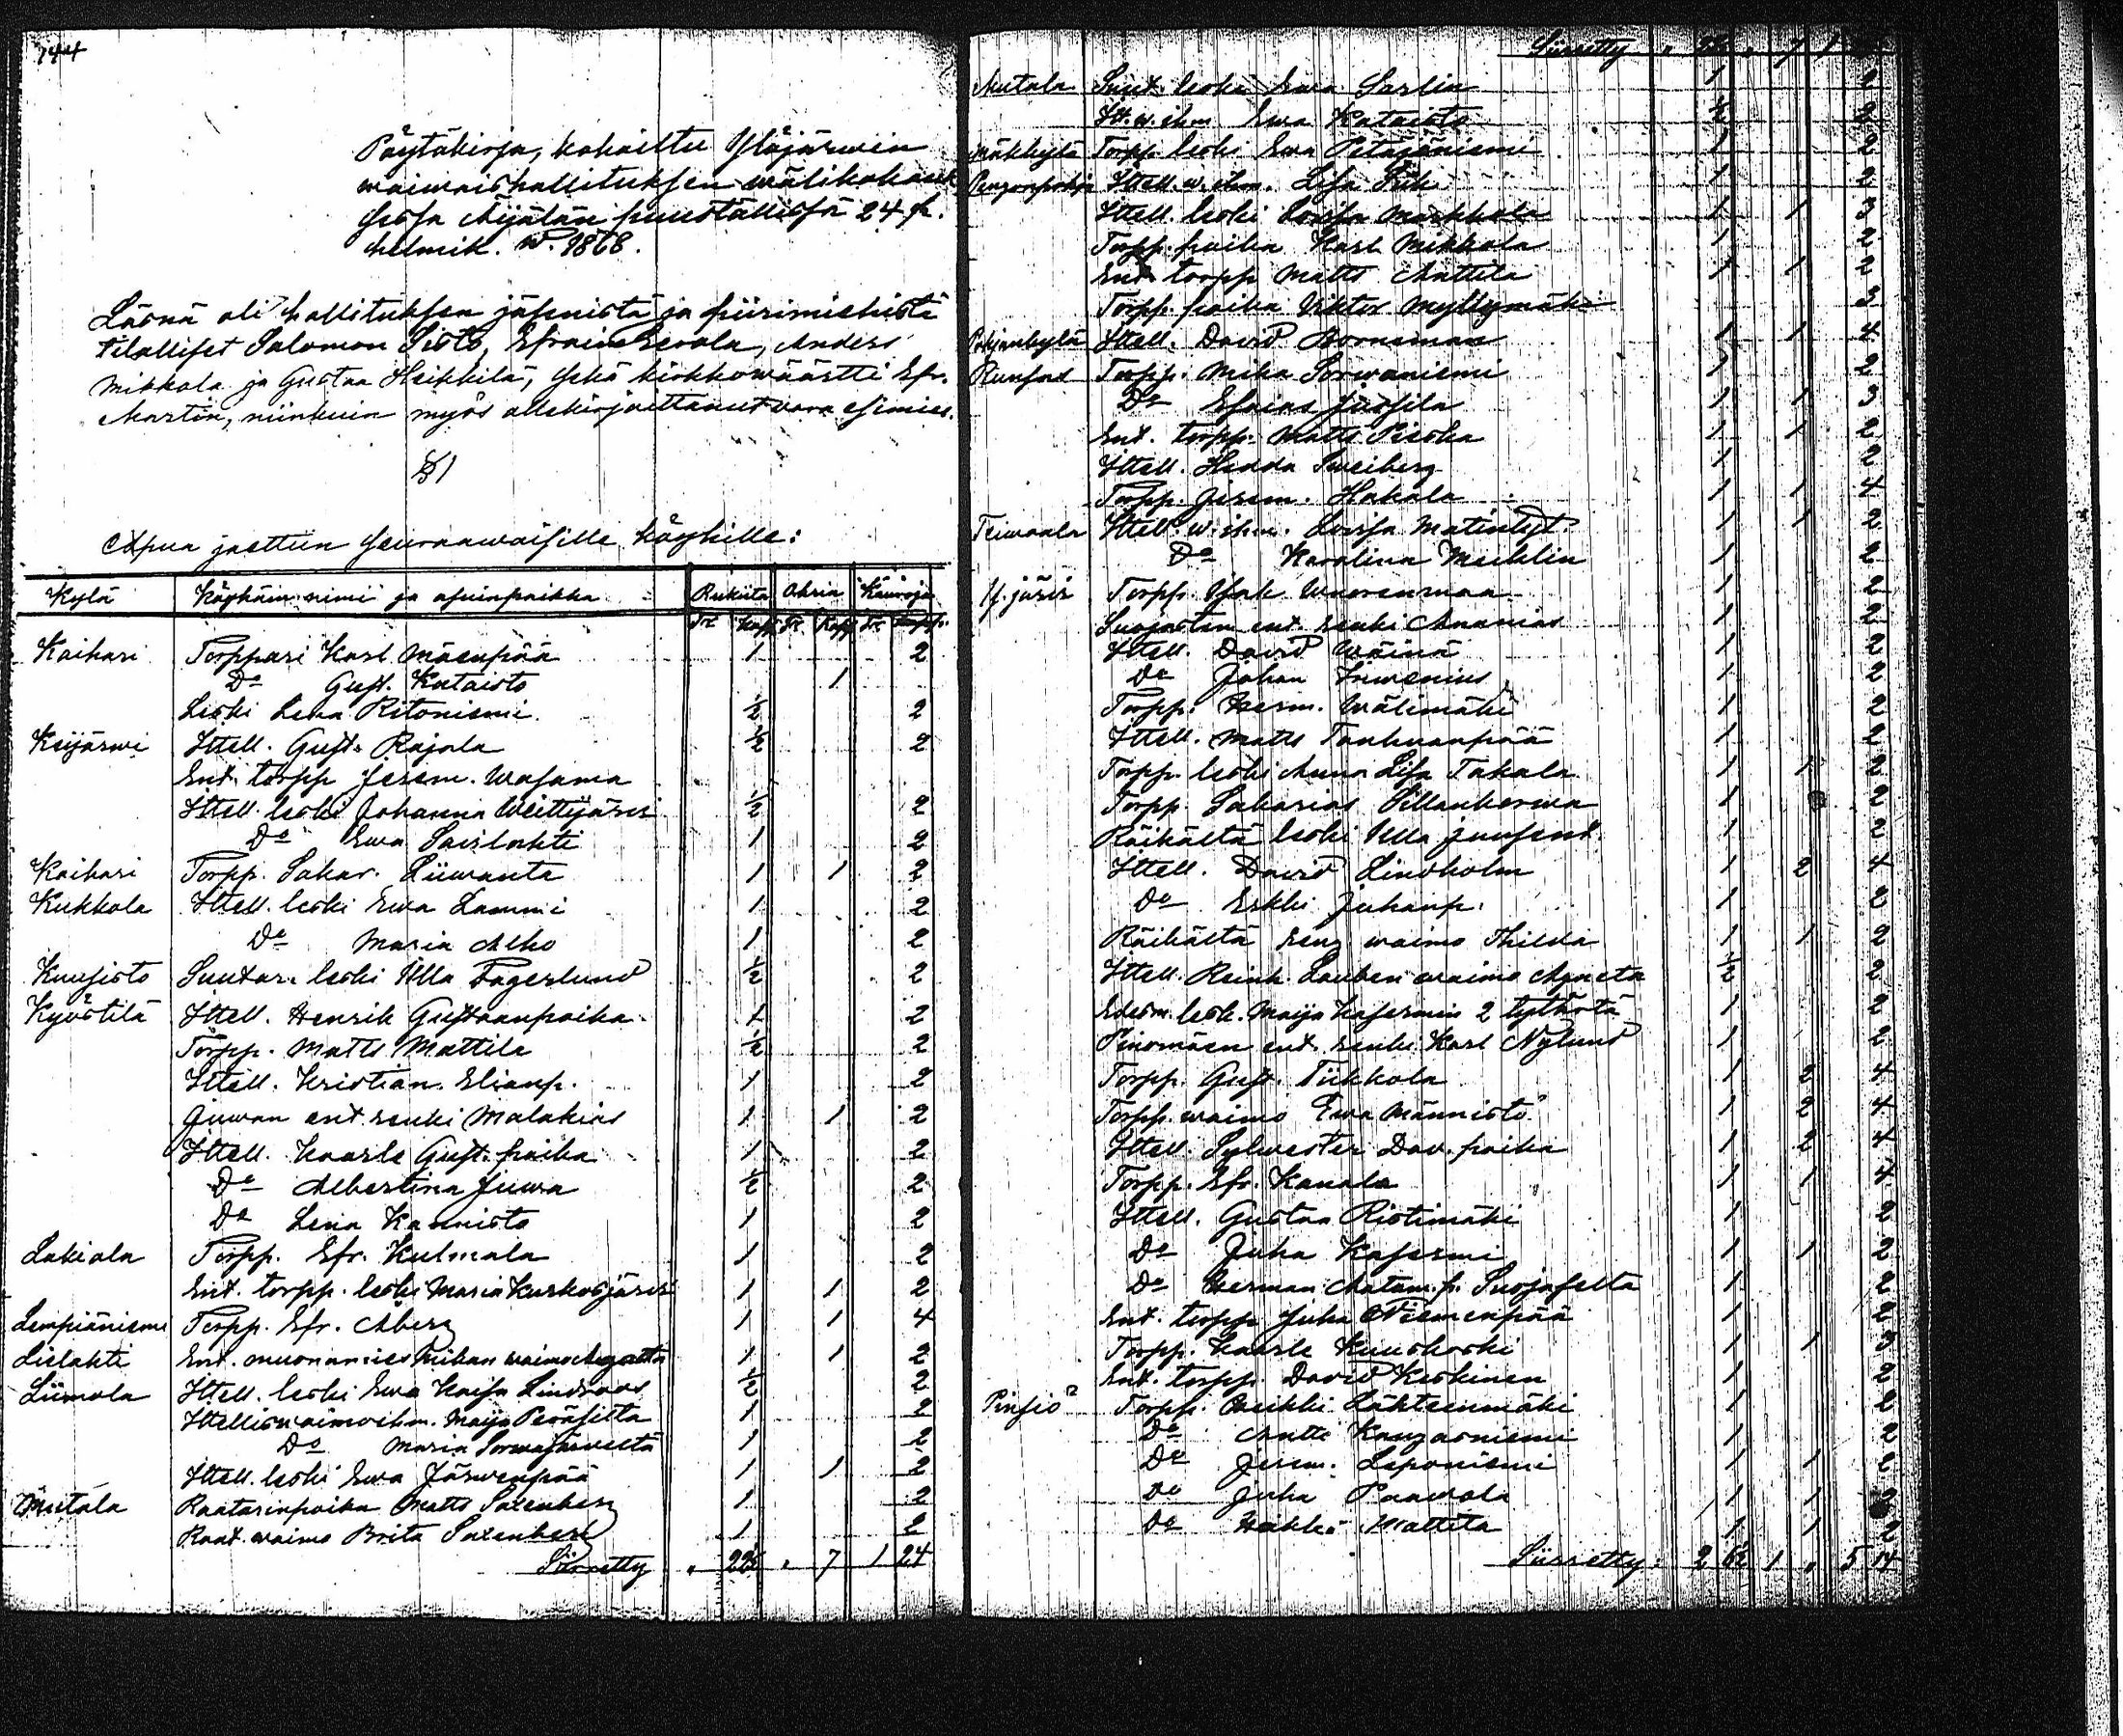 744
Pöytäkirja, kokoiltu Ylöjärwin
waiwaishallituksen wälikokouk
sessa Äijälän puuställissä 24 p.
helmik. w. 1868.
Läsnä oli hallituksen jäsenistä ja piirimiehistä
tilalliset Salomon Sisto, Efraim Eerola, Anders
Mikkola ja Gustaa Heikkilä, sekä kirkkowäärtti Efr.
Martin, niinkuin myös allekirjoittanut vara esimies.
§1
Apua jaettiin seuraawaisille köyhille:
Kylä Köyhäin nimi ja asuinpaikka Rukiita Ohria Kauroja
Tr. Kapp. Tr. Kapp. Tr. Kapp.
Kaihari Torppari Karl Mäenpää 1 2
Do Gust. Kataisto 1
Leski Lena Ritoniemi ½ 2
Keijärwi Ittell. Gust. Rajala ½ 2
Ent. torpp. Jerem. Wasama
Ittell. leski Johanna Weittijärvi ½ 2
Do Ewa Sarslahti 1 2
Kaihari Torpp. Sakar. Liiwanta 1 1 2
Kukkola Ittell. leski Ewa Lammi 1 2
Do Maria Alho 1 2
Kuusisto Suutar. leski Ulla Fagerlund ½ 2
Kyöstilä Ittell. Henrik Gustaanpoika 1 2
Torpp. Matts Mattila ½ 2
Ittell. Kristian Elianp. 1 2
Juwan ent. renki Malakias 1 1 2
Ittell. Kaarle Gust. poika 1 2
Do Albertina Juwa ½ 2
Do Lena Kannisto 1 2
Lakiala Torpp. Efr. Kulmala 1 2
Ent. torpp. leski Maria Kurkosjärvi 1 1 2
Lempiäniemi Torpp. Efr. Åberg 1 1 4
Lielahti Ent. muonamies Mihan waimo Agatta 1 1 2
Liimola Ittell. leski Ewa Kaisa Lindroos ½ 2
Ittellis waimoihm. Maija Peräsilta 1 2
Do Maria Sorwajärveltä 1 2
Ittell. leski Ewa Järwenpää 1 1 2
Mutala Raatarinpoika Matts Saxenberg 1 2
Raat. waimo Brita Saxenberg 1 2
Siirretty " 22½ " 7 1 24
Siirretty " 22½ " 7 1 24
Mutala Suut. leski Ewa Sarlin 1 2
Itt. w. ihm Ewa Kataisto ½ 2
Mäkkylä Torpp. leski Ewa Petäjäniemi 1 2
Penzonpohja Ittell. w. ihm. Lisa Piik 1 2
Ittell. leski Lovisa Markkola 1 1 3
Torpp. poika Karl Mikkola 1 2
Ent. torpp Matts Anttila 1 1 2
Torpp. poika Viktor Myllymäki 3
Pohjankylä Ittell. David Bornsman 1 1 4
Runfors Torpp. Mika Sorwaniemi 1 2
Do Esaias Jussila 1 1 3
Ent. torpp. Matts Piesha 1 1 2
Ittell. Hedda Sweiberg 1 2
Torpp. Jerem. Hakala 1 1 4
Teiwaala Ittell. w. ihm. Lovisa Matintyt. 1 1 2
Do Karolina Mecklin 1 2
Y. järvi Torpp. Isak Wuorenmaa 1 2
Suojasten ent. renki Ananias 1 2
Ittell. David Wäinä 1 2
Do Johan Iriwenius 1 2
Torpp. Herm. Wälimäki 1 2
Ittell. Matts Tanhuanpää 1 2
Torpp. leski Anna Lisa Takala 1 1 2
Torpp. Sakarias Pillankorwa 1 2
Räikältä leski Ulla Juusent. 1 2
Ittell. David Lindholm 1 2 4
Do Erkki Juhanp. 1 2
Räikältä reng. waimo Thilda 1 1 2
Ittell. Reink. Lauben waimo Agneta ½ 2
Edesm. lesk. Maija Kasermin 2 tythöä 1 2
Pinomäen ent. renki Karl Nylund 1 2
Torpp. Gust. Tiikkola 1 2 4
Torpp. waimo Ewa Männistö 1 2 4
Ittell. Sylwester Dav. poika 1 2 4
Torpp. Efr. Kanala 1 1 4
Ittell. Gustaa Ristimäki 1 2
Do Juha Kasermi 1 1 2
Do Herman Aatam. p. Suojaselta 1 2
Ent. torpp Juha Niemenpää 1 2
Torpp. Kaarle Kuuskoski 1 1 3
Ent. torpp. David Keskinen 1 2
Pinsiö Torpp. Heikki Lähteenmäki 1 2
Do Antti Kangasniemi 1 2
Do Jerem. Leponiemi 1 1 2
Do Juha Paawola 1 1 2
Do Heikki Mattila 1 1 2
Siirretty: 2 6½ 1 " 5 14